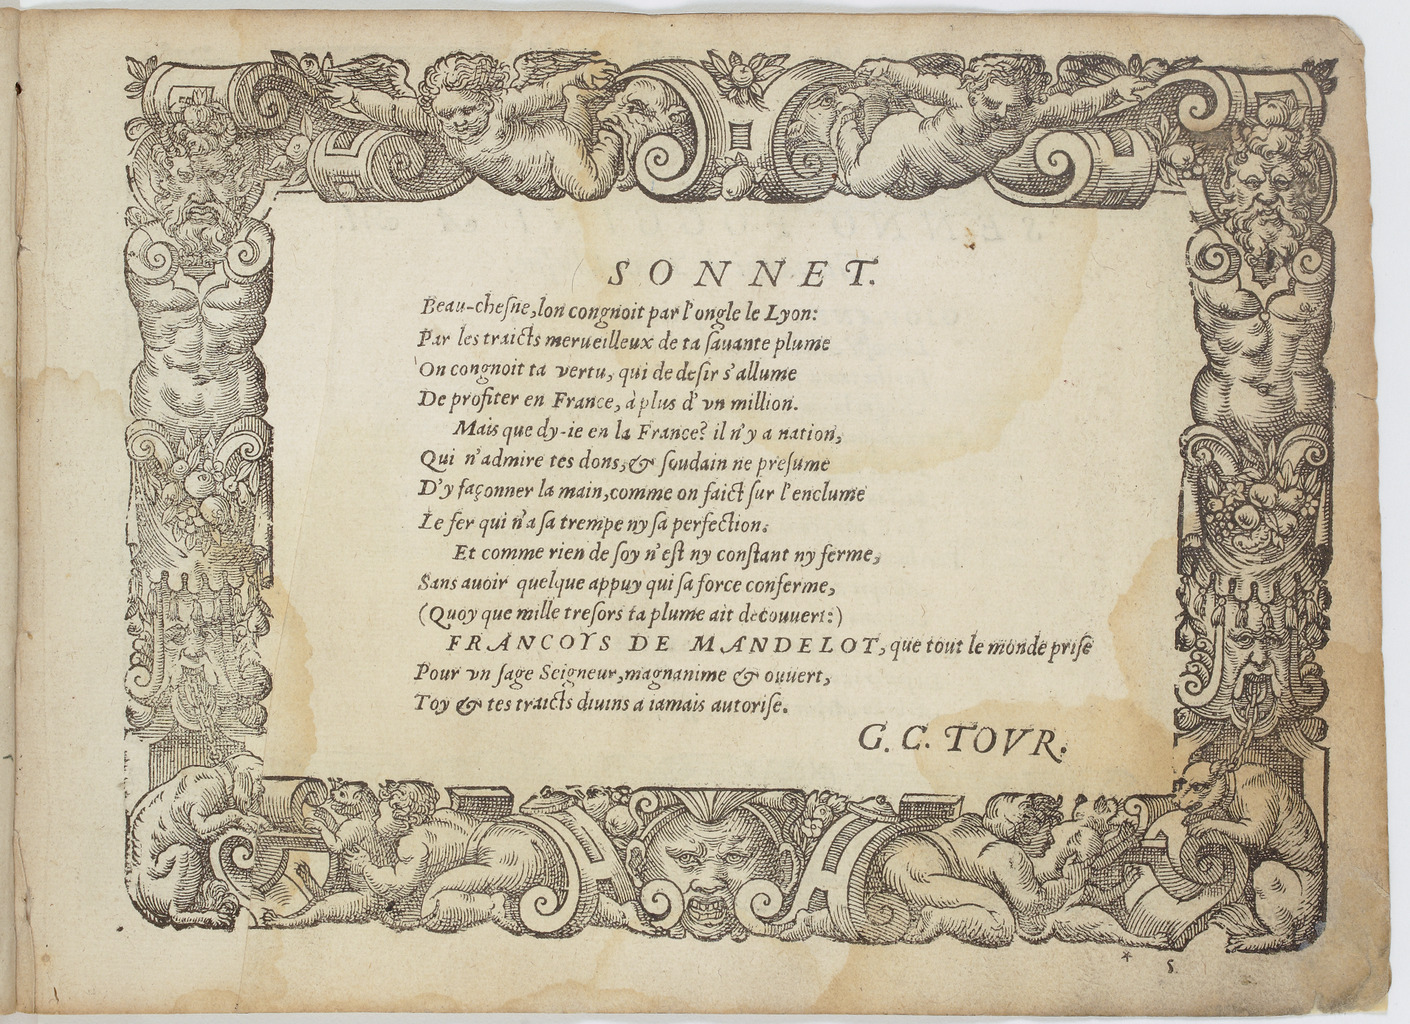 SONNET.
Beau-chesne, lon congnoit par l'ongle le Lyon:
Par les traicts merueilleux de ta sauante plume
On congnoit ta vertu, qui de desir s'allume
De profiter en France, à plus d'vn million.
Mais que dy-ie en la France? il n'y a nation,
Qui n'admire tes dons, & soudain ne presume
D'y façonner la main, comme on faict sur l'enclume
Le fer qui n'a sa trempe ny sa perfection.
Et comme rien de soy n'est ny constant ny ferme,
Sans auoir quelque appuy qui sa force conferme,
(Quoy que mille tresors ta plume ait decouuert:)
FRANCOYS DE MANDELOT, que tout le monde prise
Pour vn sage Seigneur, magnanime & ouuert,
Toy & tes traicts diuins a iamais autorise.
G. C. TOVR.
* 5